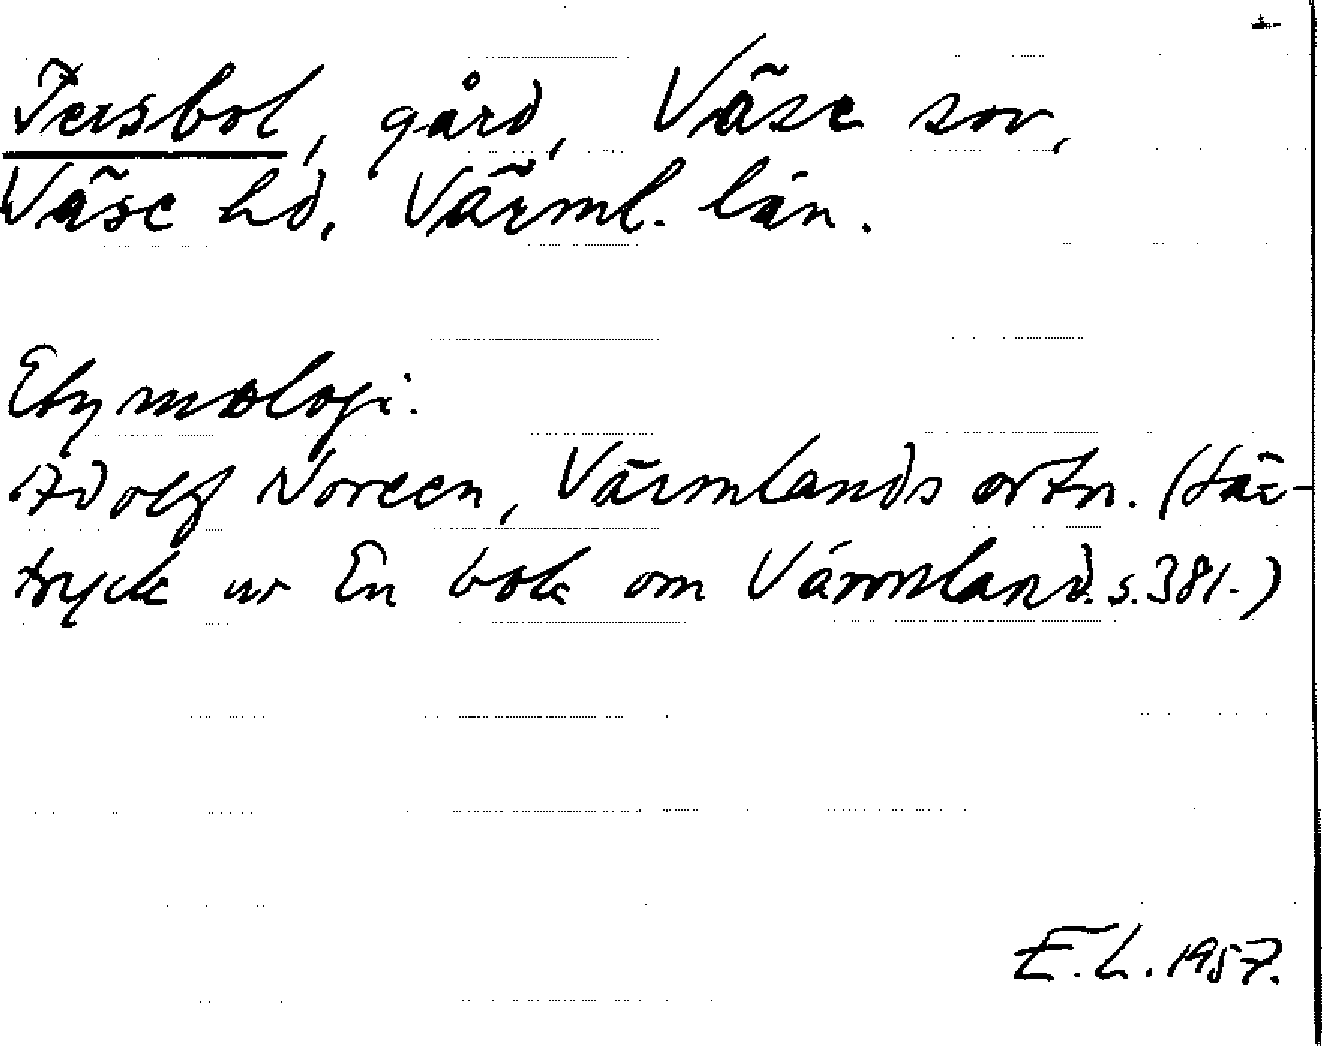 Jersbol, gård, Väse sn,
Väse hd, Värml. län.
Etymologi.
Adolf Noreen, Värmlands ortn. (Sär-
tryck ur En bok om Värmland. s. 381.)
E.L. 1957.